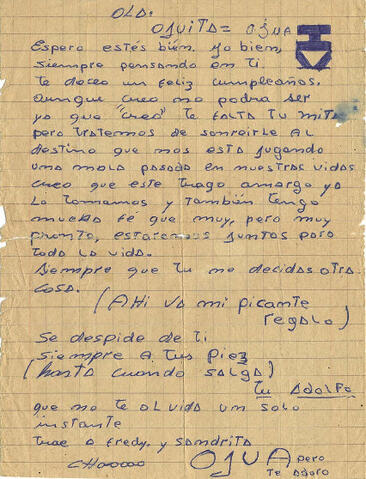 OLA:
OJUITA = OJUA
Espero estés bien. yo bien,
siempre pensando en ti.
te deceo un feliz cumpleaños.
aunque creo no podra ser
ya que "creo" te falta tu mita
pero tratemos de sonreirle al
destino que nos esta jugando
una mala pasada en nuestras vidas
creo que este trago amargo ya
lo tomamos y tambien tengo
mucha fé que muy, pero muy
pronto, estaremos juntos para
toda la vida.
siempre que tu no decidas otra
cosa.
(AHI VA mi picante
regalo)
Se despide de ti
siempre a tus piez
(hasta cuando salga)
tu ADOLFO
que no te olvida un solo
instante
trae a Fredy. y sandrita
OJUA pero
te adoro